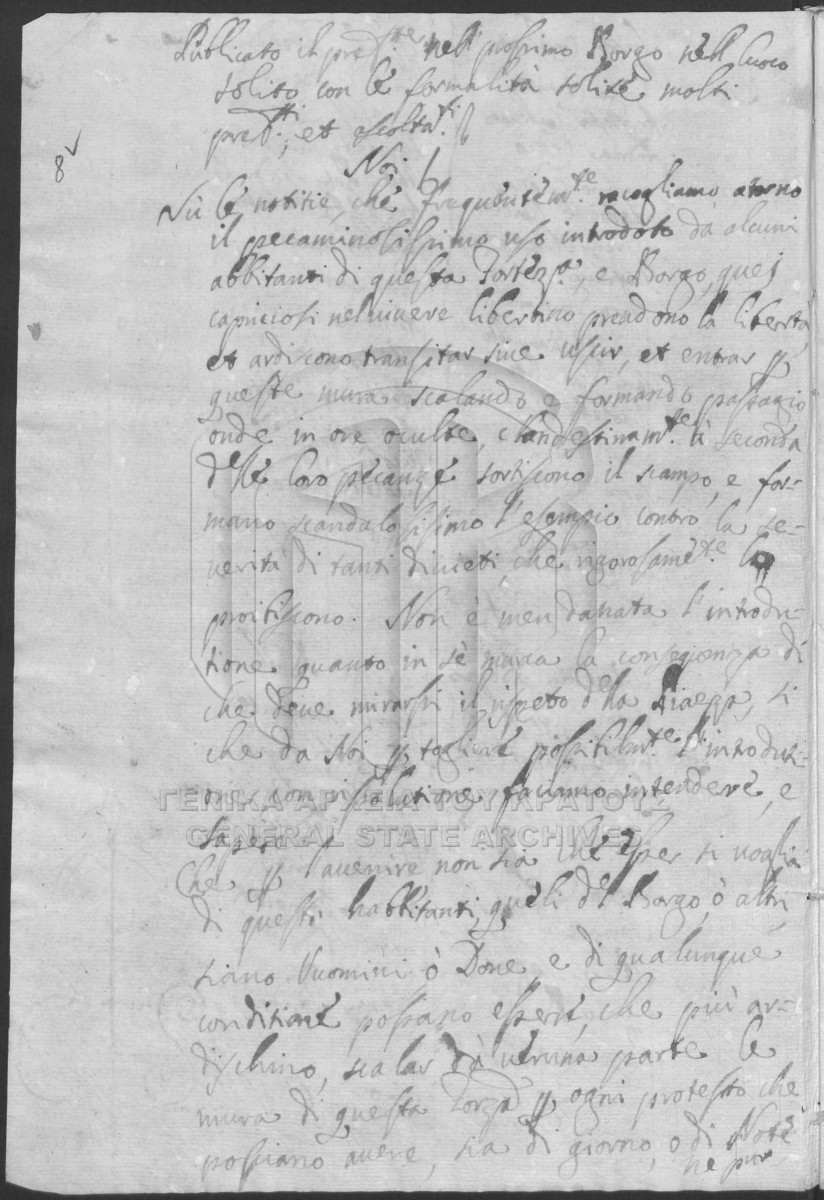 Publicato il pred.te nell prossimo Borgo nell luoco
solito con le formalità solite molti
pres.ti, et ascolta.ti
8
Noi
Sù le notitie, che frequentem.te racogliamo atorno
il pecaminosissimo uso introdoto da alcuni
abbitanti di questa Fortezza, e Borgo, quei
capriciosi nel vivere libertino prendono la libertà
et ardiscono transitar sive uscir, et entrar p
queste mura scalando e formando passagio
onde in ore oculte, clandestinam.te à seconda
delle loro pecanze sortiscono il scampo, e for-
mano scandalosissimo l'esempio contro la se-
verità di tanti divieti, che rigorosamēte. lo
proibiscono. Non è men danata l'introdu-
tione quanto in sè marca la conseguenza di
che deve mirarsi il rispeto della Piazza, si
che da Noi p togliere possibilm.te l'introduti-
one con risolutione faciamo intendere, e
sapere
ΓΕΝΙΚΑ ΑΡΧΕΙΑ ΤΟΥ ΚΡΑΤΟΥΣ
GENERAL STATE ARCHIVES
Che p l'avenire non sia che esser si voglia
di questi habbitanti, queli del Borgo, ò altri
siano Uomini ò Done e di qualunque
conditione possano essere, che più ar-
dischino, scalar da veruna parte le
mura di questa Forza p ogni protesto che
possiano avere, sia di giorno, o di Note
ne pur